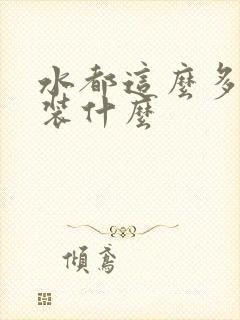 水都這麼多
裝什麼
傾鳶